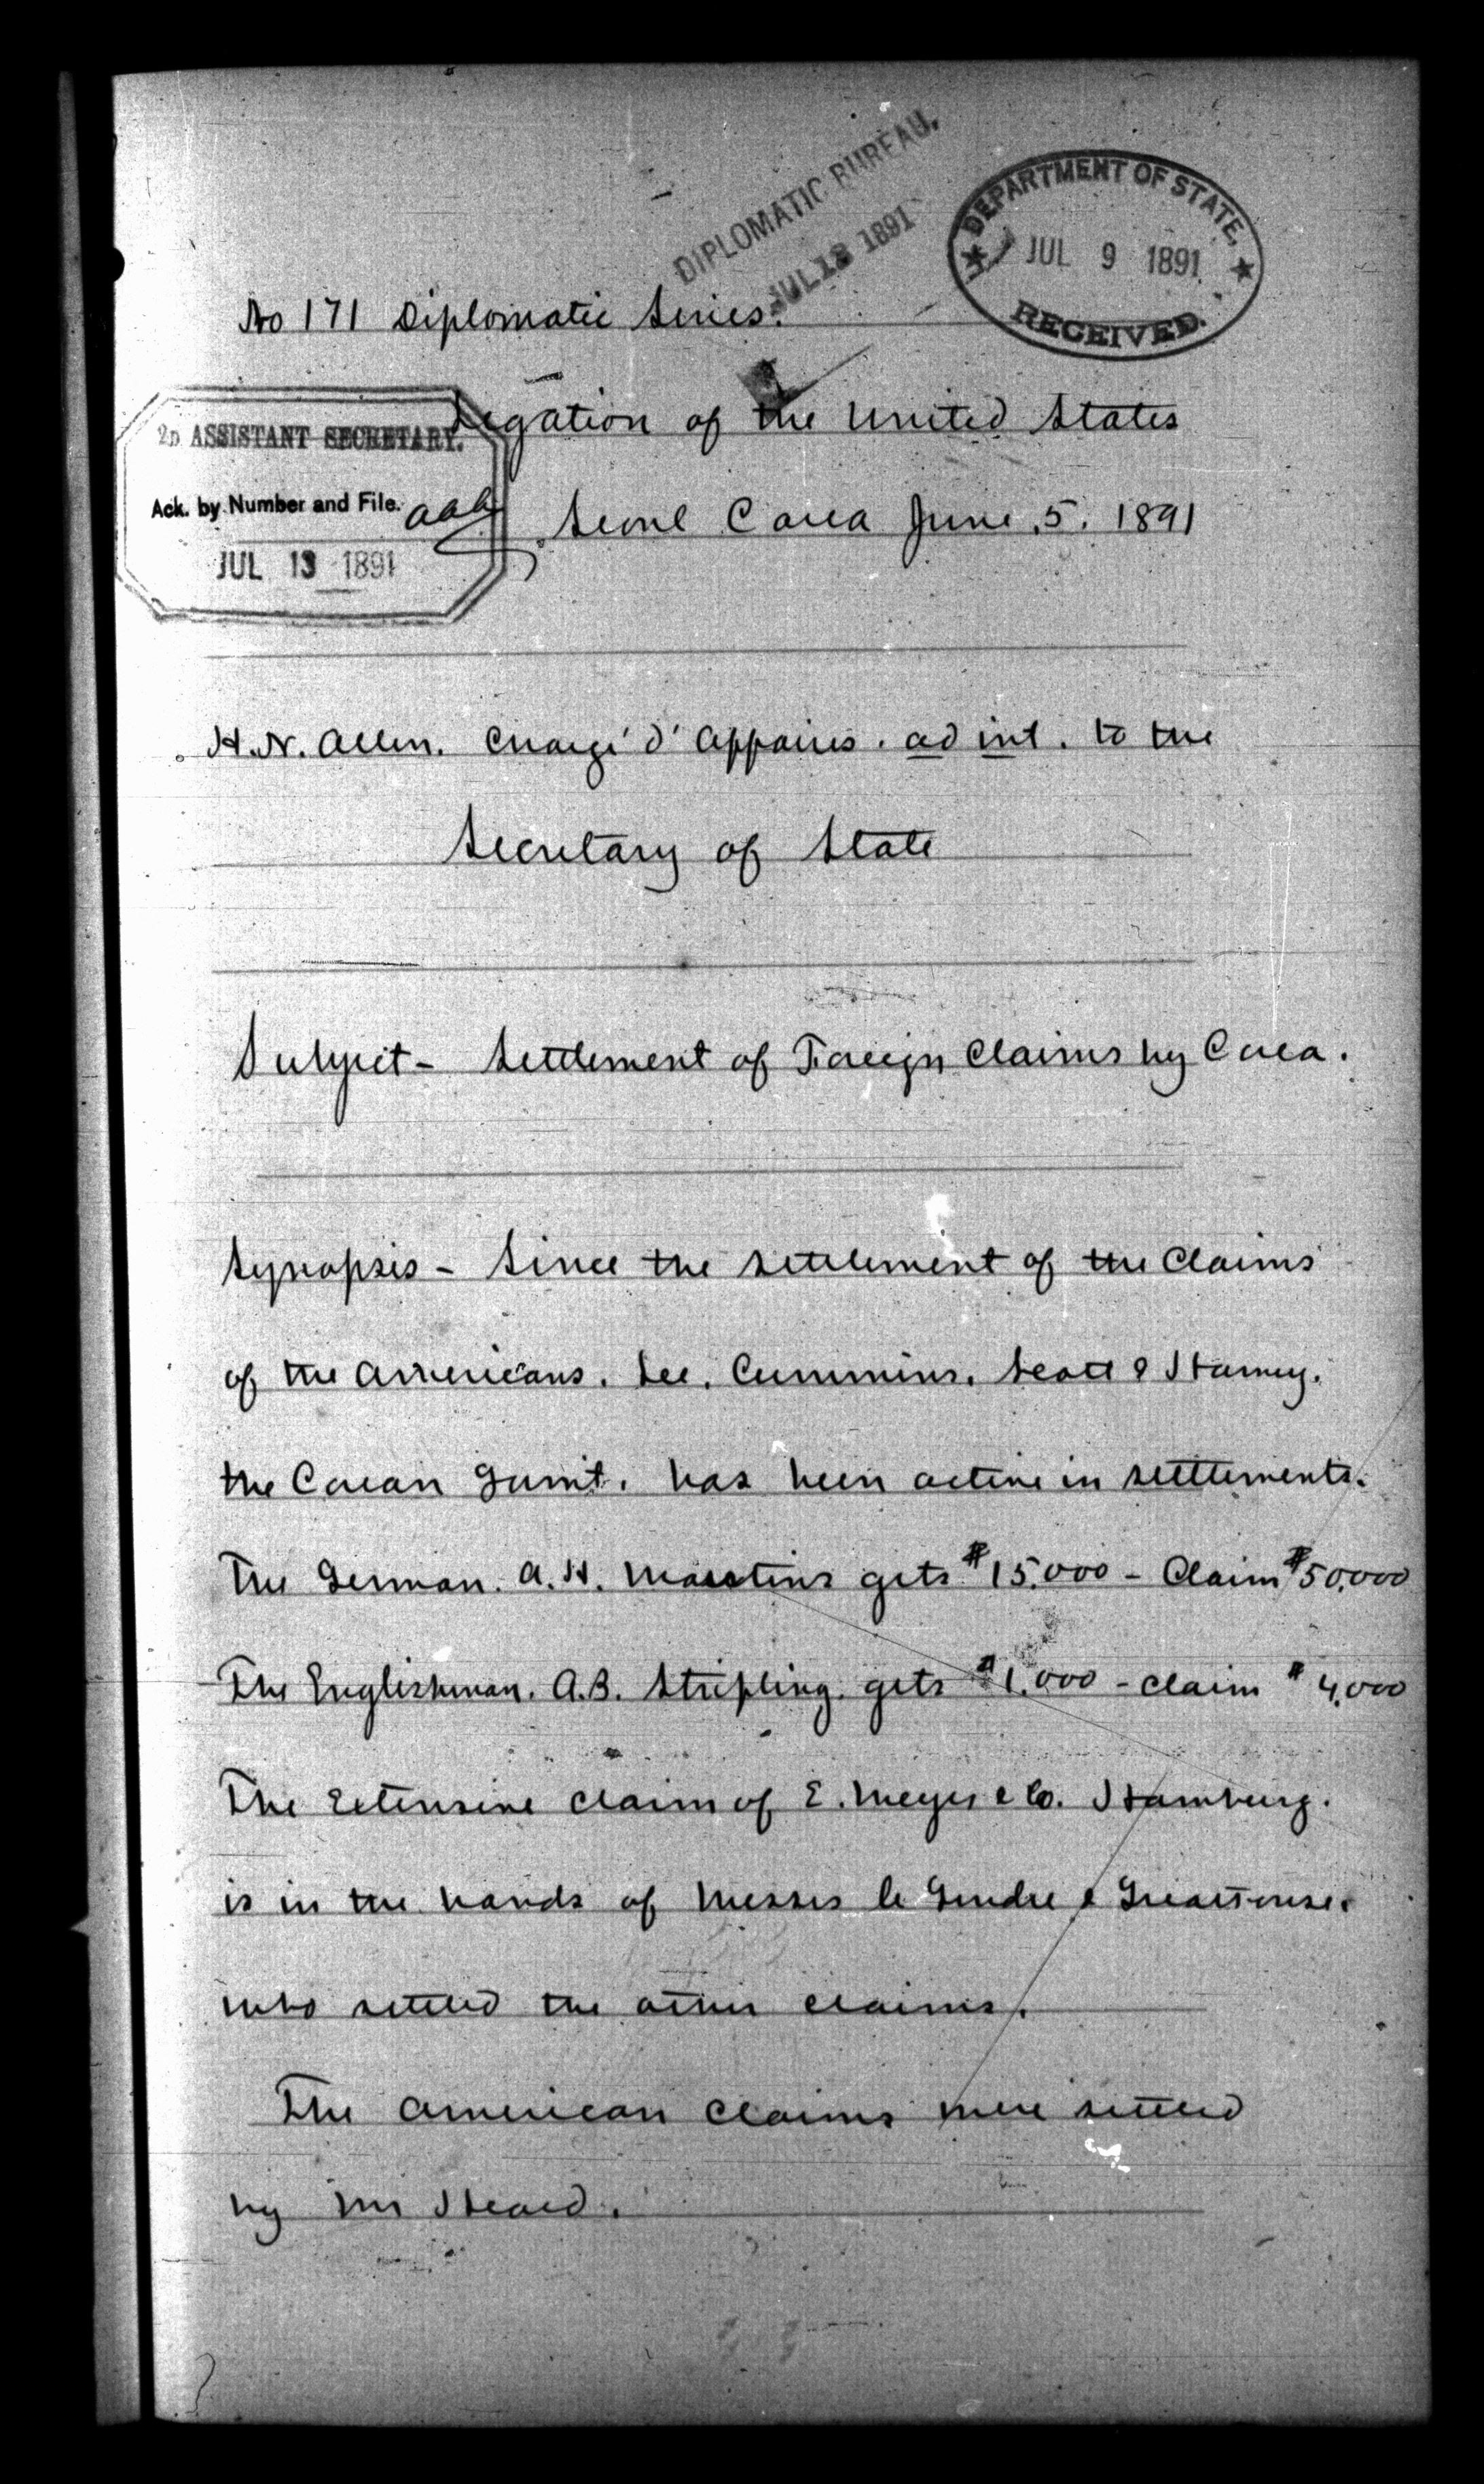 DIPLOMATIC BUREAU.
JUL 13 1891
DEPARTMENT OF STATE,
JUL 9 1891
RECEIVED.
No 171 Diplomatic Series.
Legation of the United States
2D ASSISTANT SECRETARY.
Ack. by Number and File. aaa
JUL 13 1891
Seoul Corea June 5. 1891
H. N. Allen. Chargé d' Affaires. ad int. to the
Secretary of State
Subject - Settlement of Foreign Claims by Corea.
Synopsis - Since the settlement of the Claims
of the Americans. Lee. Cummins. Scott & Harvey.
the Corean Gvmt. has been active in settlements.
The German. A. H. Maertens gets $15.000 - Claim $50.000
The Englishman. A. B. Stripling. gets $1.000 - claim $4.000
The Extensive claim of E. Meyer & Co. Hamburg.
is in the hands of Messrs le Gendre & Greathouse.
who settled the other claims.
The American claims were settled
by Mr Heard.